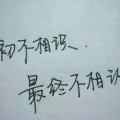 初不相识、
最终不相认